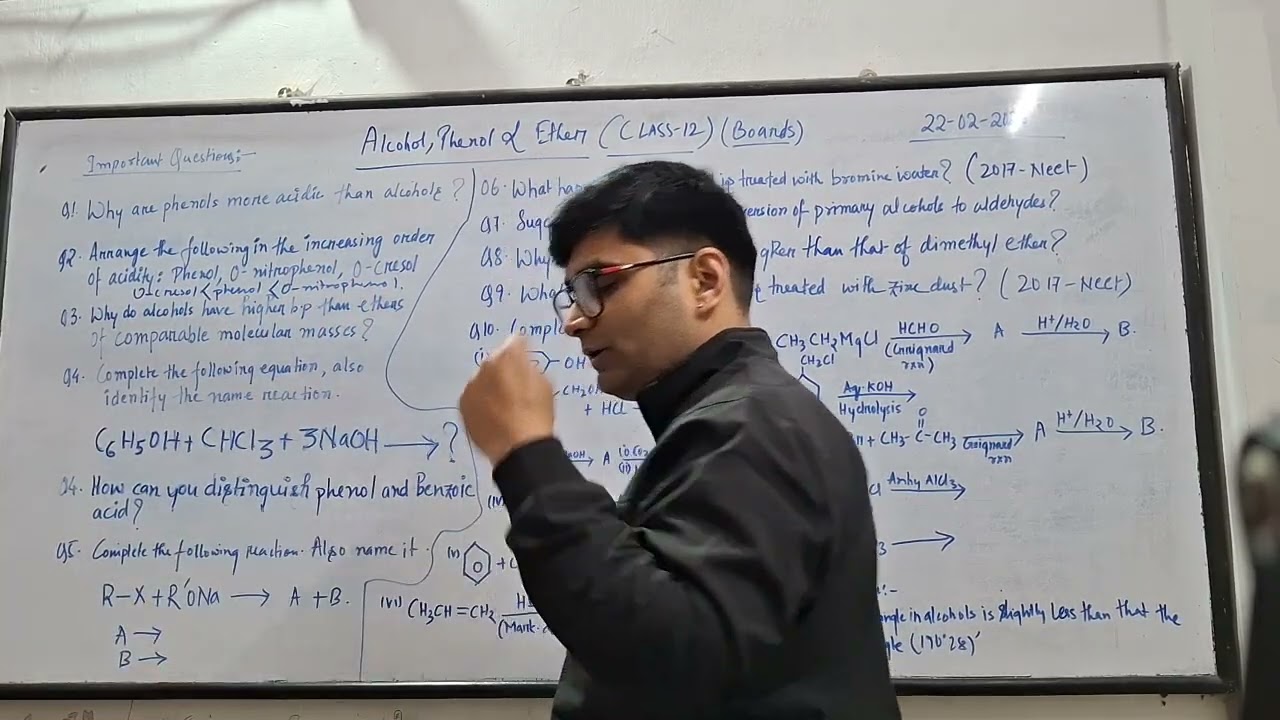 Alcohol, Phenol & Ether (CLASS-12) (Boards)
22-02-20
Important Questions:-
Q1. Why are phenols more acidic than alcohols?
Q2. Arrange the following in the increasing order
of acidity: Phenol, O-nitrophenol, O-Cresol
O-cresol < phenol < O-nitrophenol.
Q3. Why do alcohols have higher bp than ethers
of comparable molecular masses?
Q4. Complete the following equation, also
identify the name reaction.
C6H5OH + CHCl3 + 3NaOH → ?
Q4. How can you distinguish phenol and Benzoic
acid?
Q5. Complete the following reaction. Also name it.
R-X + R'ONa → A + B.
A →
B →
Q6. What is treated with bromine water? (2017-Neet)
Q7. of primary alcohols to aldehydes?
Q8. Why than that of dimethyl ether?
Q9. treated with zinc dust? (2017-Neet)
Q10.
(i) OH
CH2OH
+ HCl
A
(iv)
(v) +
(vi) CH3CH=CH2
CH3CH2MgCl HCHO (Grignard rxn) → A H+/H2O → B.
CH2Cl
Aq. KOH
Hydrolysis
O
+ CH3-C-CH3 Grignard rxn → A H+/H2O → B.
Anhy AlCl3 →
→
:-
angle in alcohols is slightly less than that the
(190°28)'